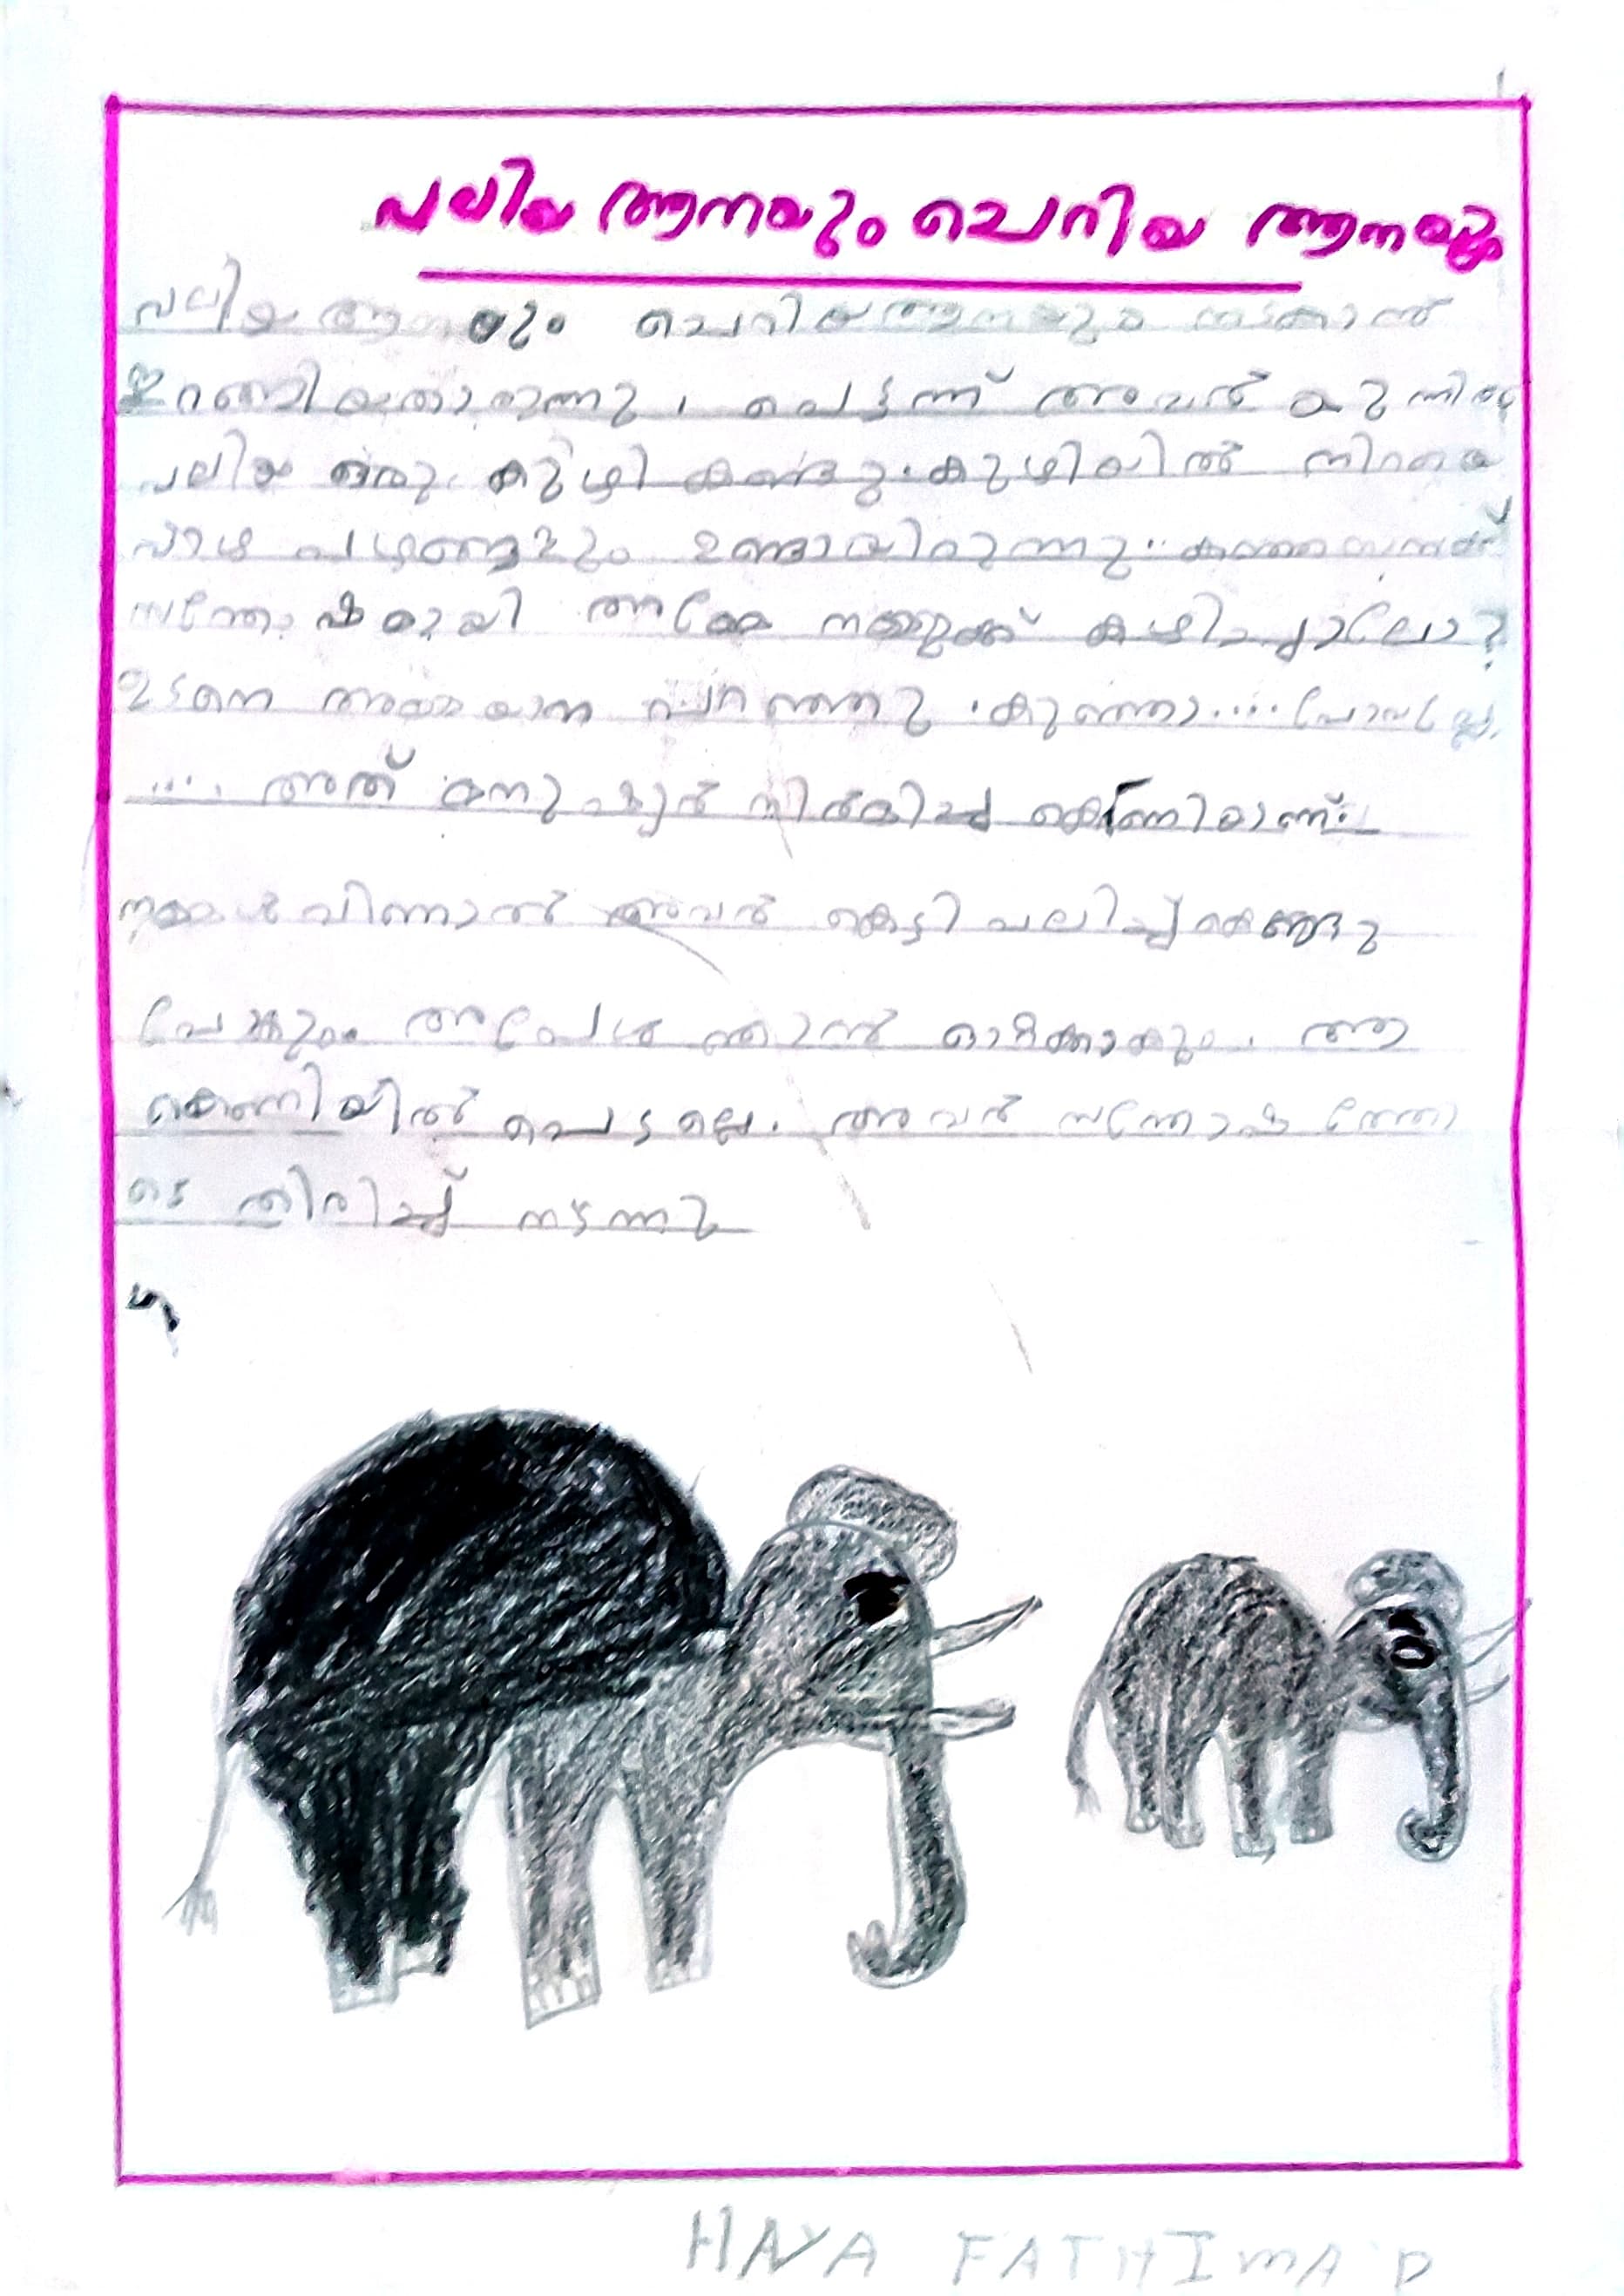 വലിയ ആനയും ചെറിയ ആനയും
വലിയ ആനയും ചെറിയ ആനയും നടക്കാൻ
ഇറങ്ങിയതാരുന്നു. പെട്ടന്ന് അവർ മുന്നിൽ
വലിയ ഒരു കുഴി കണ്ടു. കുഴിയിൽ നിറയെ
വാഴ പഴങ്ങളും ഉണ്ടായിരുന്നു..
സന്തോഷമായി അമ്മേ നമ്മുക്ക് കഴിച്ചാലോ?
ഉടനെ അമ്മയാന പറഞ്ഞു. കുഞ്ഞാ.... പോവല്ലേ.
.... അത് മനുഷ്യർ നിർമിച്ച കെണിയാണ്.
നമ്മൾ വിണാൽ അവർ കെട്ടി വലിച്ച് കൊണ്ടു
പോകും. അപോൾ ഞാൻ ഓർക്കും. ആ
കെണിയിൽ പെടല്ലെ. അവർ സന്തോഷത്തോ
ടെ തിരിച്ച് നടന്നു
HAYA FATHIMA P